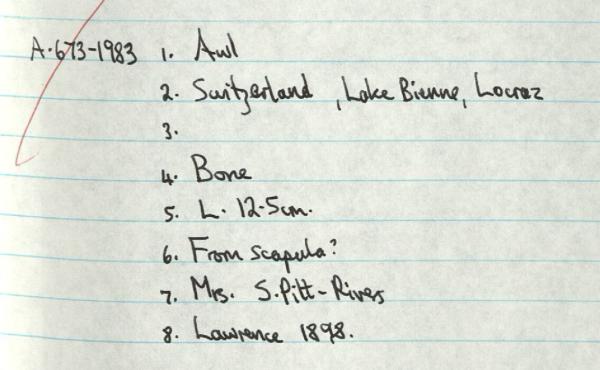 A·673-1983 1. Awl
2. Switzerland, Lake Bienne, Locraz
3.
4. Bone
5. L. 12·5cm.
6. From scapula?
7. Mrs. S.Pitt-Rivers
8. Lawrence 1898.